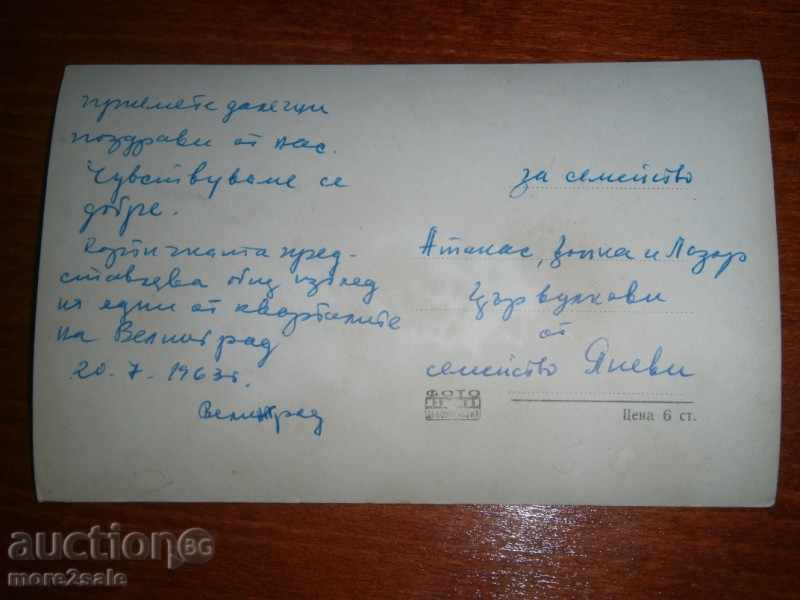 приемете далечни
поздрави от нас.
Чувствуваме се
добре.
Картичката пред-
ставлява общ изглед
на един от кварталите
на Велинград
20.7.1963г.
Велинград
за семейство
Атанас, и Лазар
Цървулкови
от
семейство Яневи
ФОТО
Цена 6 ст.
auction BG
more2sale